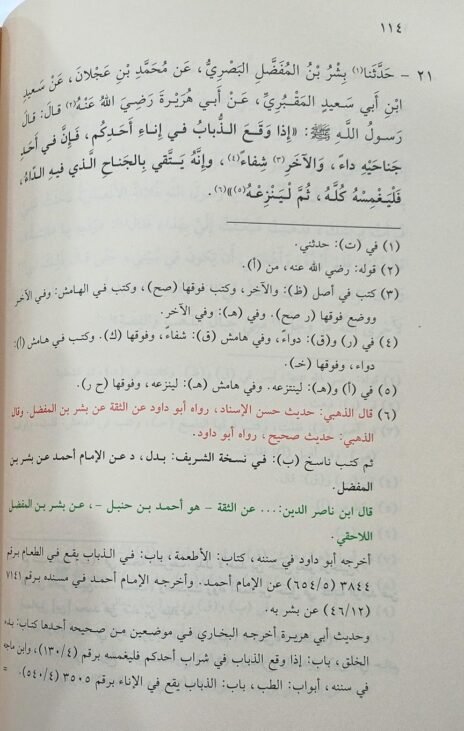 ١١٤
٢١ - حَدَّثَنَا(١) بِشْرُ بْنُ المُفَضَّلِ البَصْرِيُّ، عَن مُحَمَّدِ بْنِ عَجْلانَ، عَنْ سَعِيدِ
ابْنِ أَبِي سَعِيدٍ المَقْبُرِيِّ، عَنْ أَبِي هُرَيْرَةَ رَضِيَ اللهُ عَنْهُ(٢) قَالَ: قَالَ
رَسُولُ اللهِ ﷺ: «إِذَا وَقَعَ الذُّبَابُ فِي إِنَاءِ أَحَدِكُم، فَإِنَّ فِي أَحَدِ
جَنَاحَيْهِ دَاءً، وَالآخَرِ(٣) شِفَاءً(٤)، وَإِنَّهُ يَتَّقِي بِالجَنَاحِ الَّذِي فِيهِ الدَّاءُ،
فَلْيَغْمِسْهُ كُلَّهُ، ثُمَّ لْيَنْزِعْهُ(٥)»(٦).
(١) في (ت): حدثني.
(٢) قوله: رضي الله عنه، من (أ).
(٣) كتب في أصل (ظ): والآخر، وكتب فوقها (صح)، وكتب في الهامش: وفي الآخر
ووضع فوقها (ر صح). وفي (هـ): وفي الآخر.
(٤) في (ر) و(ق): دواءً، وفي هامش (ق): شفاءً، وفوقها (ك). وكتب في هامش (أ):
دواء، وفوقها (خـ).
(٥) في (أ) و(هـ): لينتزعه. وفي هامش (هـ): لينزعه، وفوقها (ح ر).
(٦) قال الذهبي: حديث حسن الإسناد، رواه أبو داود عن الثقة عن بشر بن المفضل. وقال
الذهبي: حديث صحيح، رواه أبو داود.
ثم كتب ناسخ (ب): في نسخة الشريف: بدل، د عن الإمام أحمد عن بشر بن
المفضل.
قال ابن ناصر الدين:... عن الثقة - هو أحمد بن حنبل -، عن بشر بن المفضل
اللاحقي.
أخرجه أبو داود في سننه، كتاب: الأطعمة، باب: في الذباب يقع في الطعام برقم
٣٨٤٤ (٦٥٤/٥) عن الإمام أحمد. وأخرجه الإمام أحمد في مسنده برقم ٧١٤١
(٤٦/١٢) عن بشر به.
وحديث أبي هريرة أخرجه البخاري في موضعين من صحيحه أحدها كتاب: بدء
الخلق، باب: إذا وقع الذباب في شراب أحدكم فليغمسه برقم (١٣٠/٤)، وابن ماجه
في سننه، أبواب: الطب، باب: الذباب يقع في الإناء برقم ٣٥٠٥ (٥٤٠/٤). =